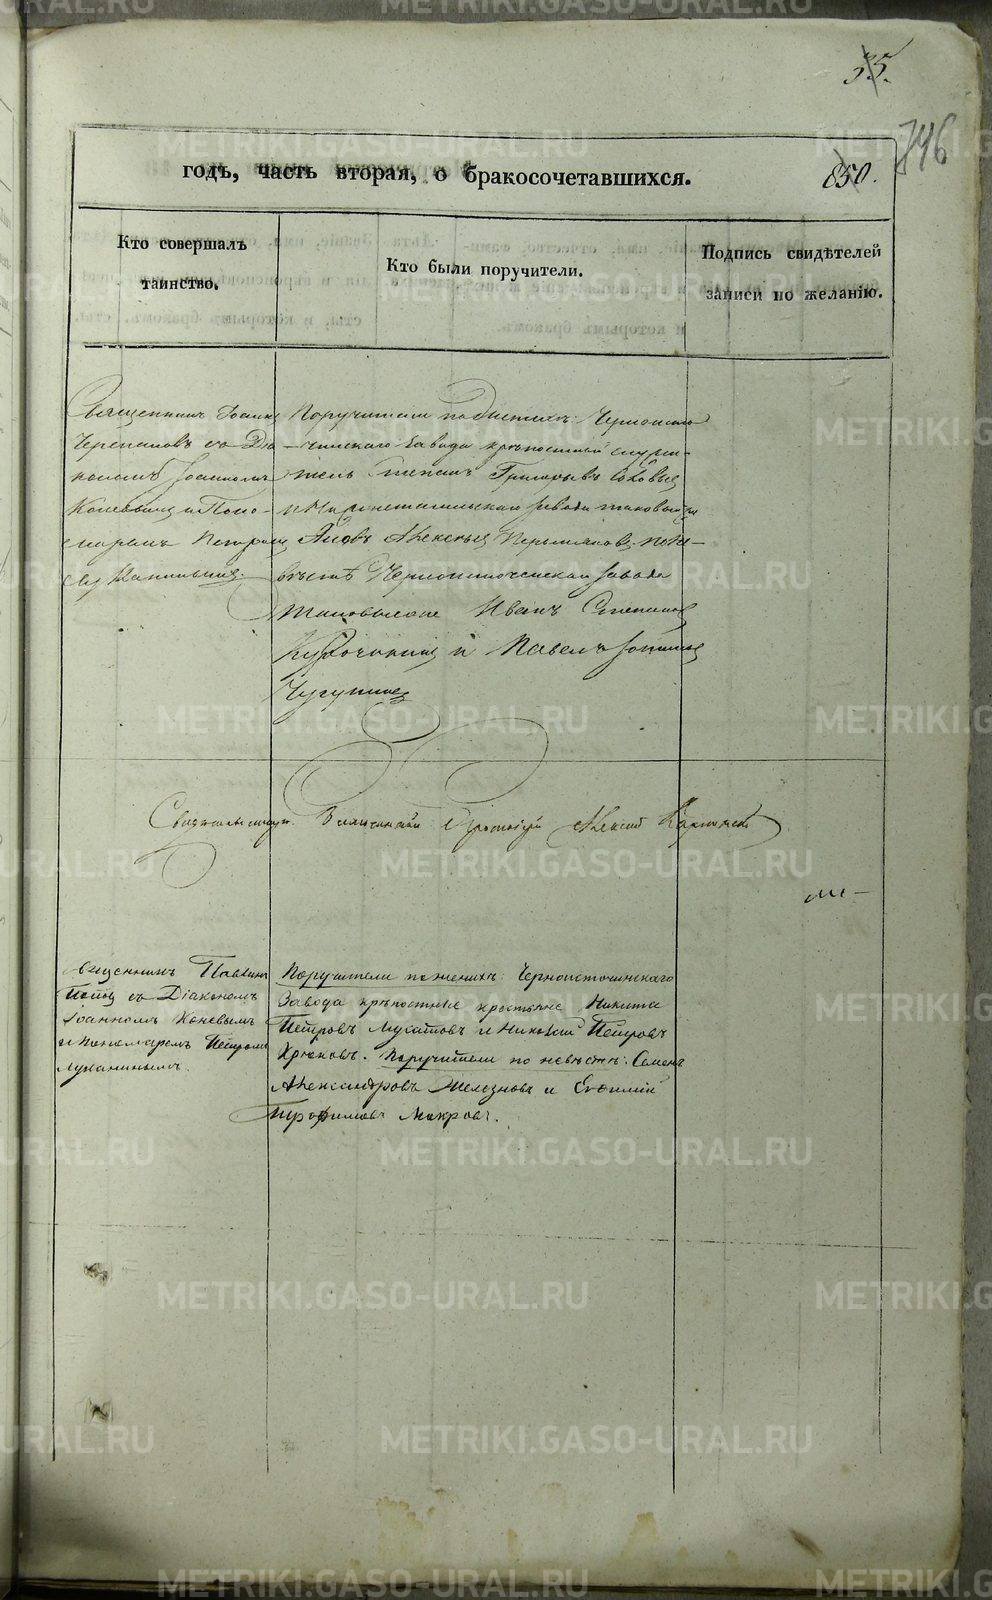 35.
746
годъ, часть вторая, о бракосочетавшихся.
850.
Кто совершалъ
таинство.
Кто были поручители.
Подпись свидѣтелей
записи по желанію.
Священникъ Іоаннъ
Черепановъ съ Діа-
кономъ Іоанномъ
Коневымъ и Поно-
маремъ Петромъ
Поручители по женихѣ: Черноисто-
чинскаго завода крѣпостный служи-
тель Степанъ Григорьевъ
и Нижнетагильскаго завода таковый же
Яковъ Алексѣевъ Перьмяковъ; по не-
вѣстѣ Черноисточинскаго завода
таковые же Иванъ Степановъ
и Павелъ
Чугунновъ
Протоіерей Алексій
Священникъ
Поповъ съ Діакономъ
Іоанномъ Коневымъ
и пономаремъ Петромъ
Луканинымъ.
Поручители по женихѣ: Черноисточинскаго
Завода крѣпостные крестьяне Никита
Петровъ Мусатовъ и Николай Петровъ
Крюковъ. Поручители по невѣстѣ: Семенъ
Александровъ Железновъ и Евфимій
Трофимовъ Макровъ.
METRIKI.GASO-URAL.RU